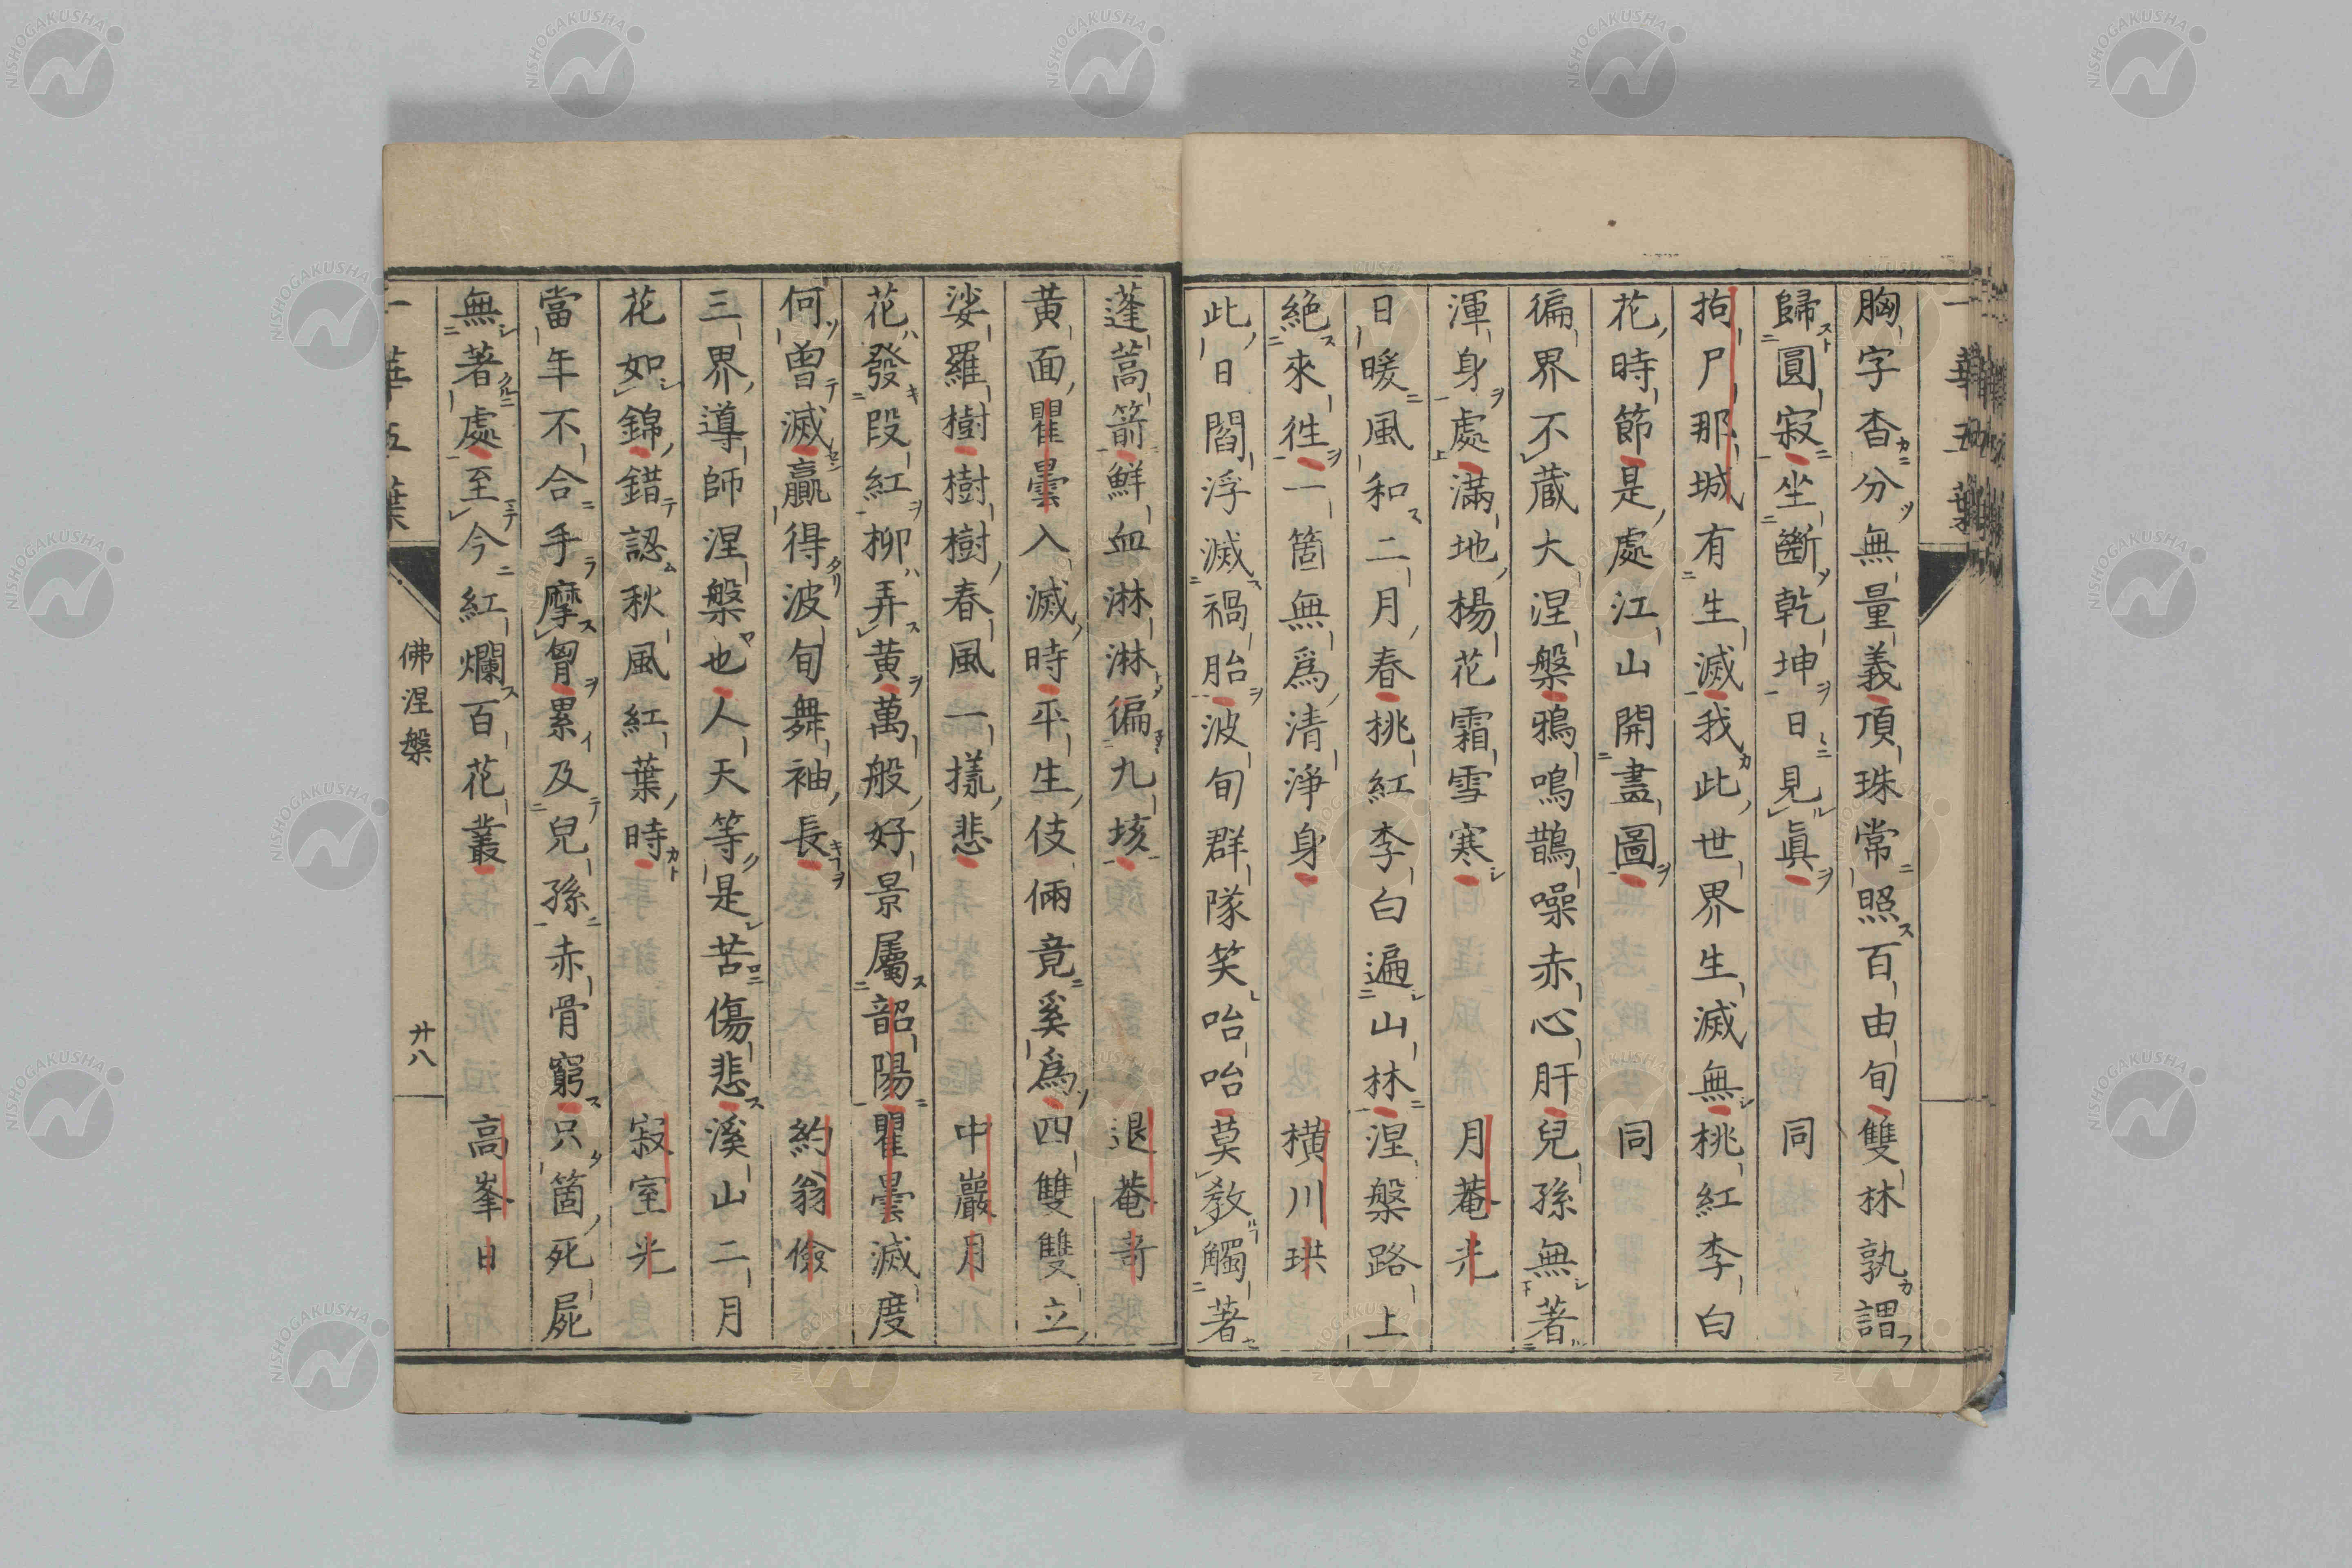 胸字杳分無量義頂珠常照百由旬雙林孰謂
歸圓寂坐斷乾坤日見眞 同
拘尸那城有生滅我此世界生滅無桃紅李白
花時節是處江山開畫圖 同
徧界不蔵大涅槃鴉鳴鵲噪赤心肝兒孫無著
渾身處滿地楊花霜雪寒 月菴光
日暖風和二月春桃紅李白遍山林涅槃路上
絶來徃一箇無爲清淨身 横川珙
此日閻浮滅禍胎波旬群隊笑咍咍莫教觸著
蓬蒿箭鮮血淋淋徧九垓 退菴奇
黄面瞿曇入滅時平生伎倆竟奚爲四雙雙立
娑羅樹樹樹春風一㨾悲 中巖月
花發段紅柳弄黄萬般好景屬韶陽瞿曇滅度
何曽滅贏得波旬舞袖長 約翁儉
三界導師涅槃也人天等是苦傷悲溪山二月
花如錦錯認秋風紅葉時 寂室光
當年不合手摩胷累及兒孫赤骨窮只箇死屍
無著處至今紅爛百花叢 高峯日
一華五葉
佛涅槃
廿八
NISHOGAKUSHA